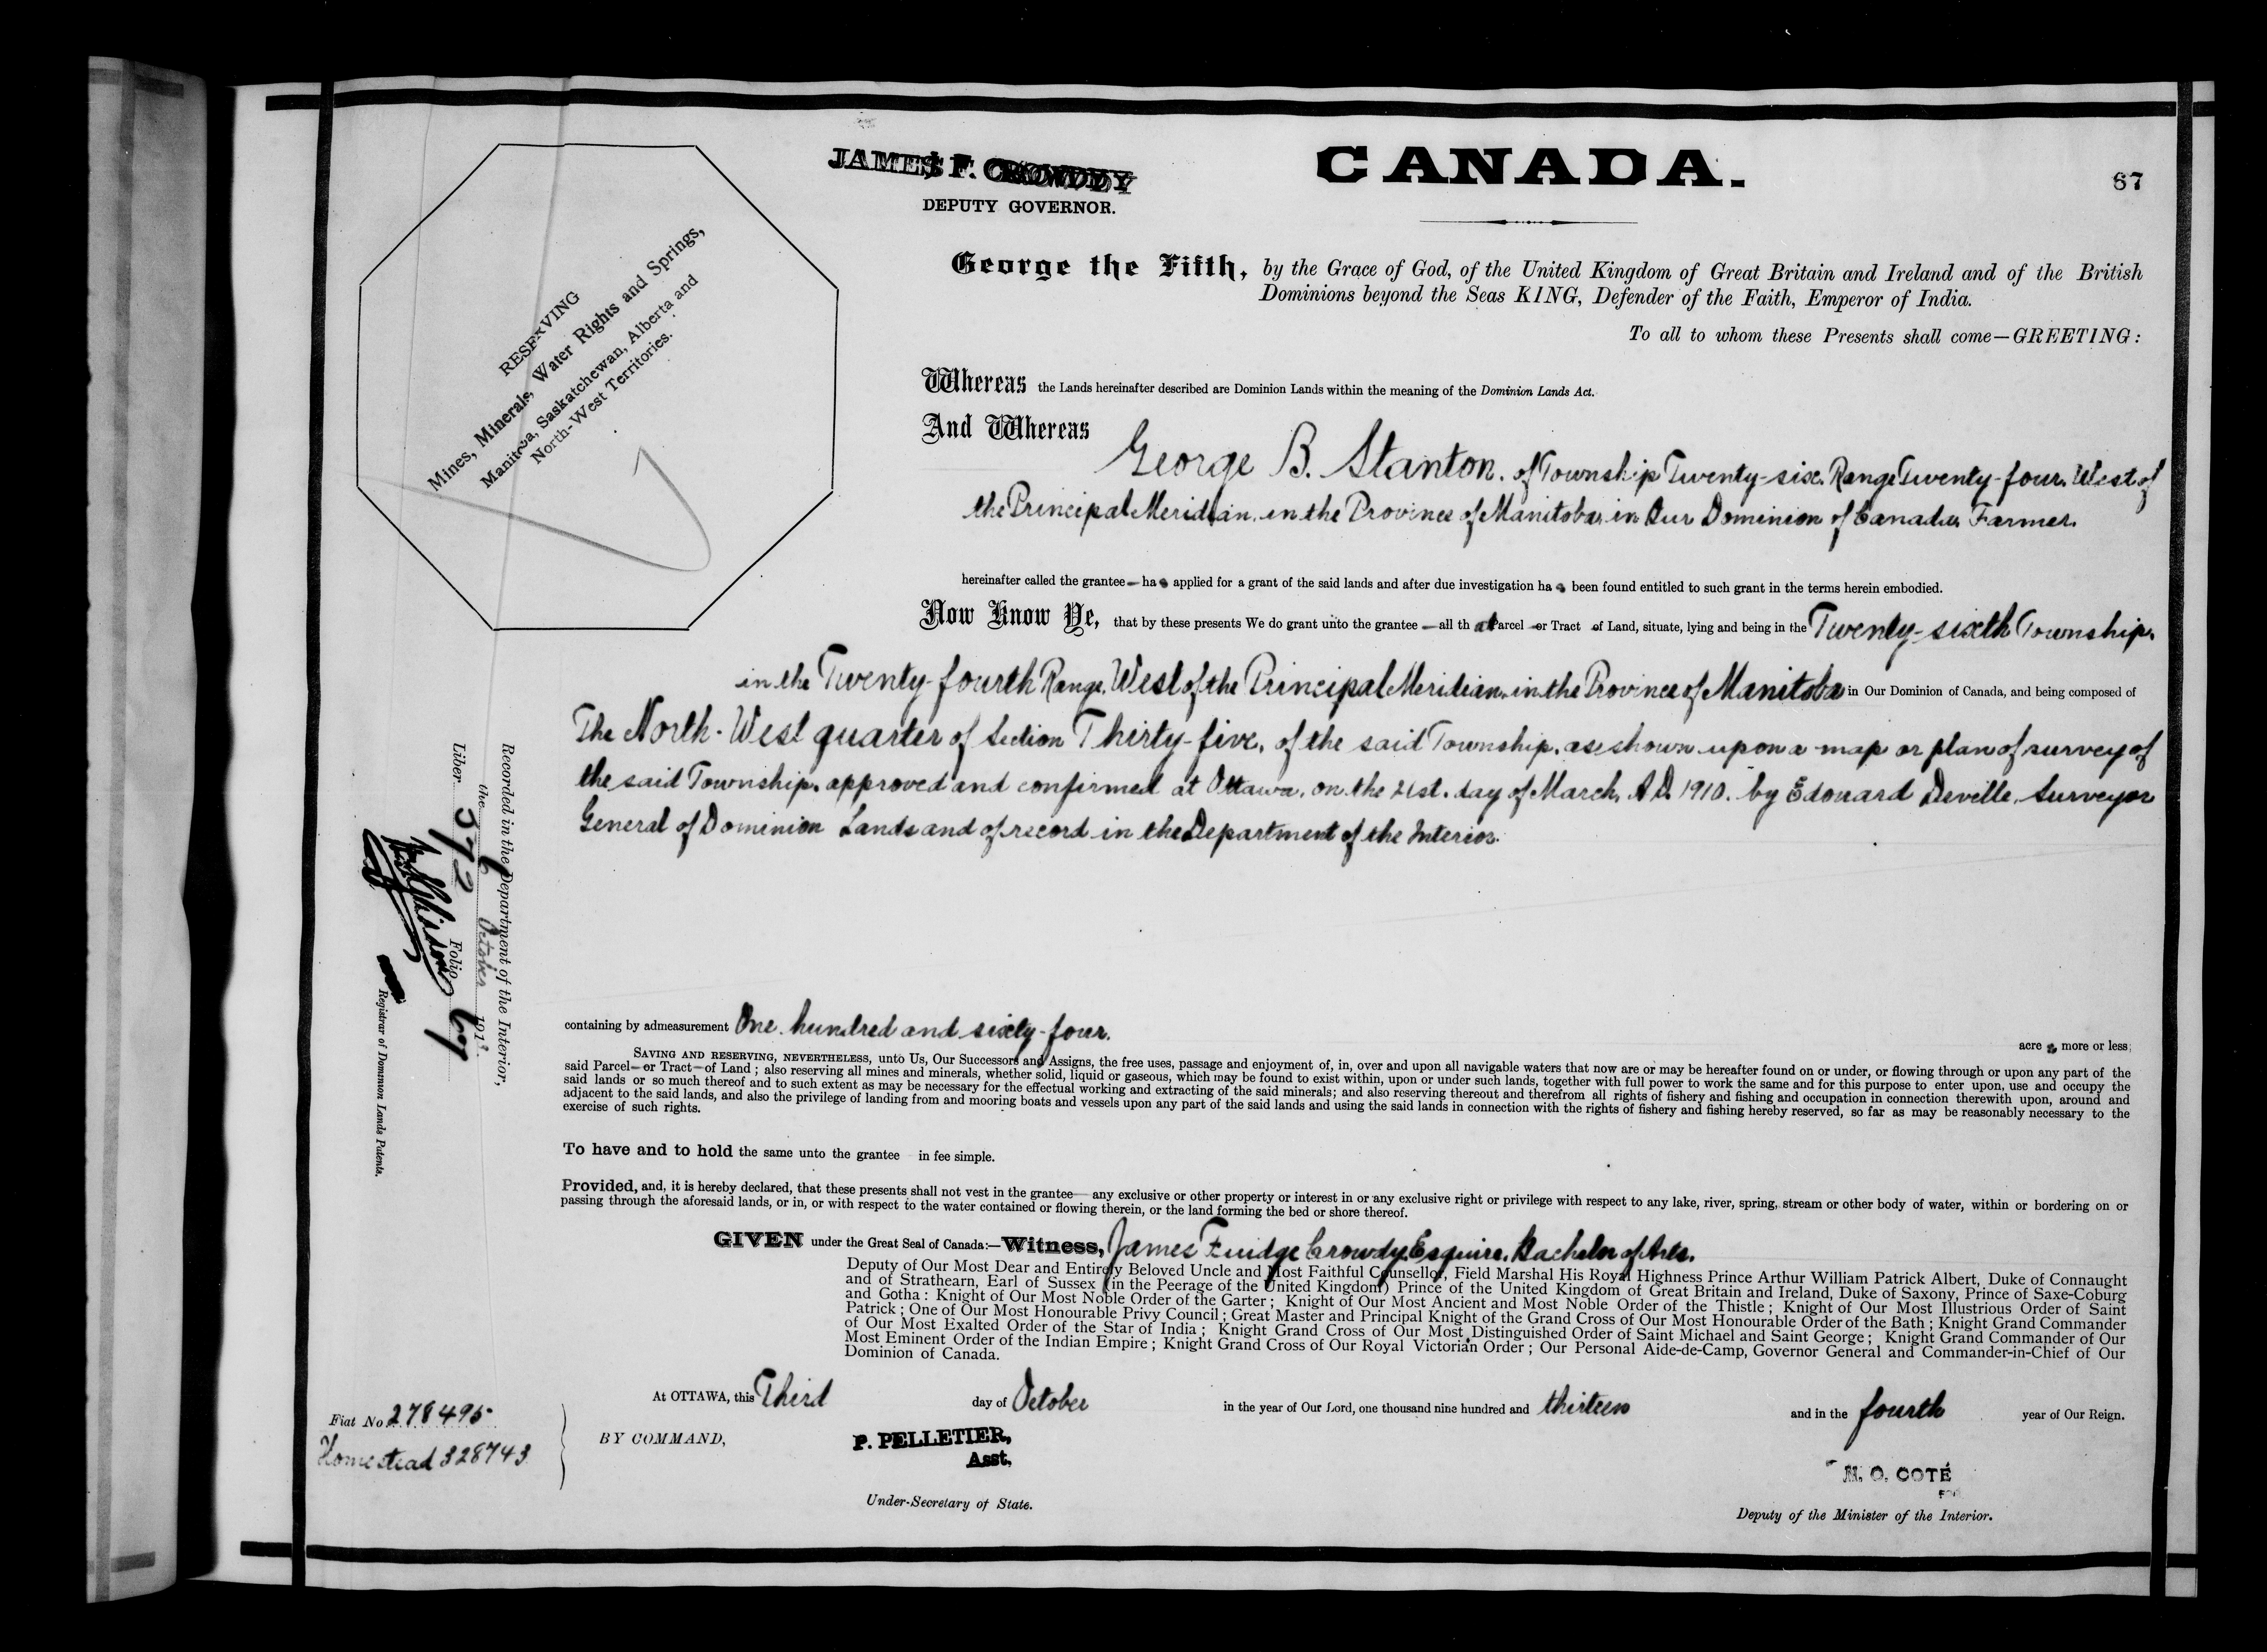 JAMES F. CROWDY
DEPUTY GOVERNOR.
CANADA.
67
RESERVING
Mines, Minerals, Water Rights and Springs,
Manitoba, Saskatchewan, Alberta and
North-West Territories.
George the Fifth, by the Grace of God, of the United Kingdom of Great Britain and Ireland and of the British
Dominions beyond the Seas KING, Defender of the Faith, Emperor of India.
To all to whom these Presents shall come—GREETING:
Whereas the Lands hereinafter described are Dominion Lands within the meaning of the Dominion Lands Act.
And Whereas
George B. Stanton. of Township Twenty-six. Range Twenty-four. West of
the Principal Meridian. in the Province of Manitoba, in Our Dominion of Canada, Farmer.
hereinafter called the grantee — has applied for a grant of the said lands and after due investigation has been found entitled to such grant in the terms herein embodied.
Now Know Ye, that by these presents We do grant unto the grantee — all that Parcel or Tract of Land, situate, lying and being in the Twenty-sixth Township.
in the Twenty-fourth Range. West of the Principal Meridian. in the Province of Manitoba in Our Dominion of Canada, and being composed of
The North-West quarter of Section Thirty-five, of the said Township. as shown upon a map or plan of survey of
the said Township. approved and confirmed at Ottawa. on the 21st. day of March, A.D. 1910. by Edouard Deville, Surveyor
General of Dominion Lands and of record in the Department of the Interior.
Recorded in the Department of the Interior,
the 6 October 1913.
Liber 372 Folio 67
Registrar of Dominion Lands Patents.
containing by admeasurement One hundred and sixty-four. acres more or less;
SAVING AND RESERVING, NEVERTHELESS, unto Us, Our Successors and Assigns, the free uses, passage and enjoyment of, in, over and upon all navigable waters that now are or may be hereafter found on or under, or flowing through or upon any part of the
said Parcel—or Tract—of Land; also reserving all mines and minerals, whether solid, liquid or gaseous, which may be found to exist within, upon or under such lands, together with full power to work the same and for this purpose to enter upon, use and occupy the
said lands or so much thereof and to such extent as may be necessary for the effectual working and extracting of the said minerals; and also reserving thereout and therefrom all rights of fishery and fishing and occupation in connection therewith upon, around and
adjacent to the said lands, and also the privilege of landing from and mooring boats and vessels upon any part of the said lands and using the said lands in connection with the rights of fishery and fishing hereby reserved, so far as may be reasonably necessary to the
exercise of such rights.
To have and to hold the same unto the grantee in fee simple.
Provided, and, it is hereby declared, that these presents shall not vest in the grantee— any exclusive or other property or interest in or any exclusive right or privilege with respect to any lake, river, spring, stream or other body of water, within or bordering on or
passing through the aforesaid lands, or in, or with respect to the water contained or flowing therein, or the land forming the bed or shore thereof.
GIVEN under the Great Seal of Canada:—Witness, James Fuidge Crowdy, Esquire, Bachelor of Arts.
Deputy of Our Most Dear and Entirely Beloved Uncle and Most Faithful Counsellor, Field Marshal His Royal Highness Prince Arthur William Patrick Albert, Duke of Connaught
and of Strathearn, Earl of Sussex (in the Peerage of the United Kingdom) Prince of the United Kingdom of Great Britain and Ireland, Duke of Saxony, Prince of Saxe-Coburg
and Gotha: Knight of Our Most Noble Order of the Garter; Knight of Our Most Ancient and Most Noble Order of the Thistle; Knight of Our Most Illustrious Order of Saint
Patrick; One of Our Most Honourable Privy Council; Great Master and Principal Knight of the Grand Cross of Our Most Honourable Order of the Bath; Knight Grand Commander
of Our Most Exalted Order of the Star of India; Knight Grand Cross of Our Most Distinguished Order of Saint Michael and Saint George; Knight Grand Commander of Our
Most Eminent Order of the Indian Empire; Knight Grand Cross of Our Royal Victorian Order; Our Personal Aide-de-Camp, Governor General and Commander-in-Chief of Our
Dominion of Canada.
At OTTAWA, this Third day of October in the year of Our Lord, one thousand nine hundred and thirteen and in the fourth year of Our Reign.
Fiat No. 278495
Homestead 328743
BY COMMAND,
P. PELLETIER,
Asst.
Under-Secretary of State.
N. O. COTÉ
FOR
Deputy of the Minister of the Interior.